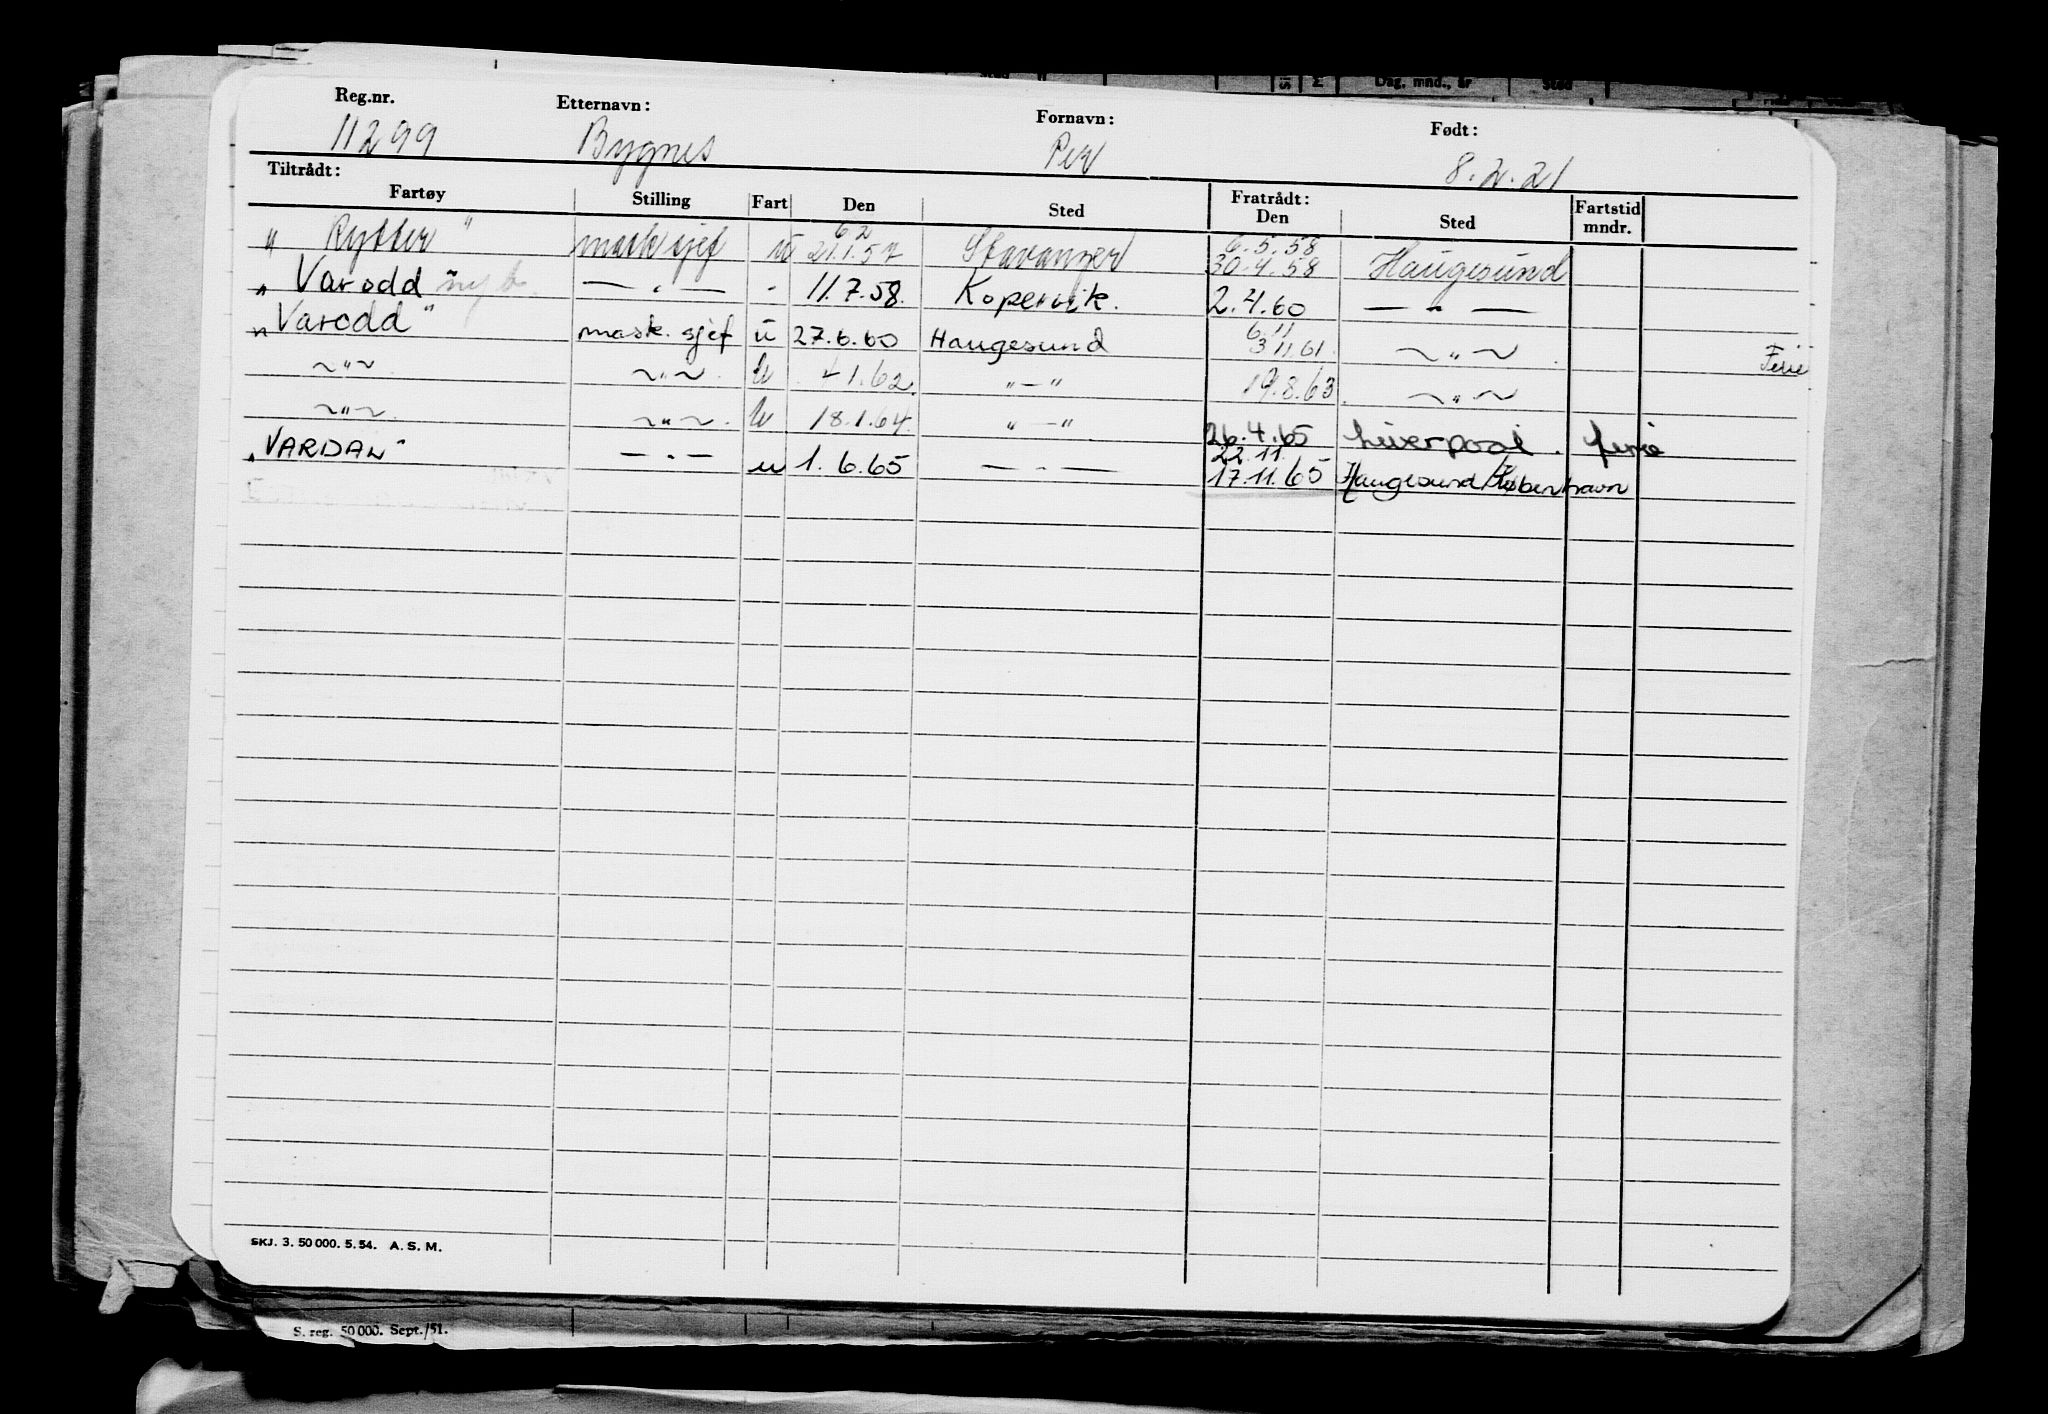 Dag, mnd., år Sted
Reg.nr. Etternavn: Fornavn: Født:
11299 Bygnes Per 8.2.21
Tiltrådt: Fratrådt:
Fartøy Stilling Fart Den Sted Den Sted Fartstid mndr.
6.2 6.5.58
"Rytter" mask sjef u 21.1.57 Stavanger 30.4.58 Haugesund
"Varodd" — " — " 11.7.58. Kopervik. 2.4.60 — " —
6.11
"Varodd" mask. sjef u 27.6.60 Haugesund 3.11.61. ~ " ~ Ferie
~ " ~ ~ " ~ u 1.62 " — " 19.8.63 ~ " ~
~ " ~ ~ " ~ u 18.1.64. " — " 26.4.65 Liverpool. ferie
22.11.
"VARDAL" — " — u 1.6.65 — " — 17.11.65 Haugesund/København
SKJ. 3. 50 000. 5. 54. A. S. M.
S. reg. 50 000. Sept./51.